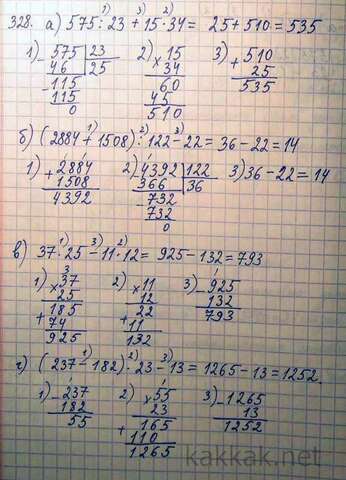 328. а) 575 : 23 + 15 · 34 = 25 + 510 = 535
1) 3) 2)
1) 575 | 23 2) × 15 3) + 510
46 | 25 34 25
115 60 535
115 45
0 510
б) (2884 + 1508) : 122 − 22 = 36 − 22 = 14
1) 2) 3)
1) + 2884 2) 4392 | 122 3) 36 − 22 = 14
1508 366 | 36
4392 732
732
0
в) 37 · 25 − 11 · 12 = 925 − 132 = 793
1) 3) 2)
1) × 37 2) × 11 3) − 925
25 12 132
185 22 793
+ 74 + 11
925 132
г) (237 − 182) · 23 − 13 = 1265 − 13 = 1252.
1) 2) 3)
1) − 237 2) × 55 3) − 1265
182 23 13
55 165 1252
+ 110
1265
kakkak.net